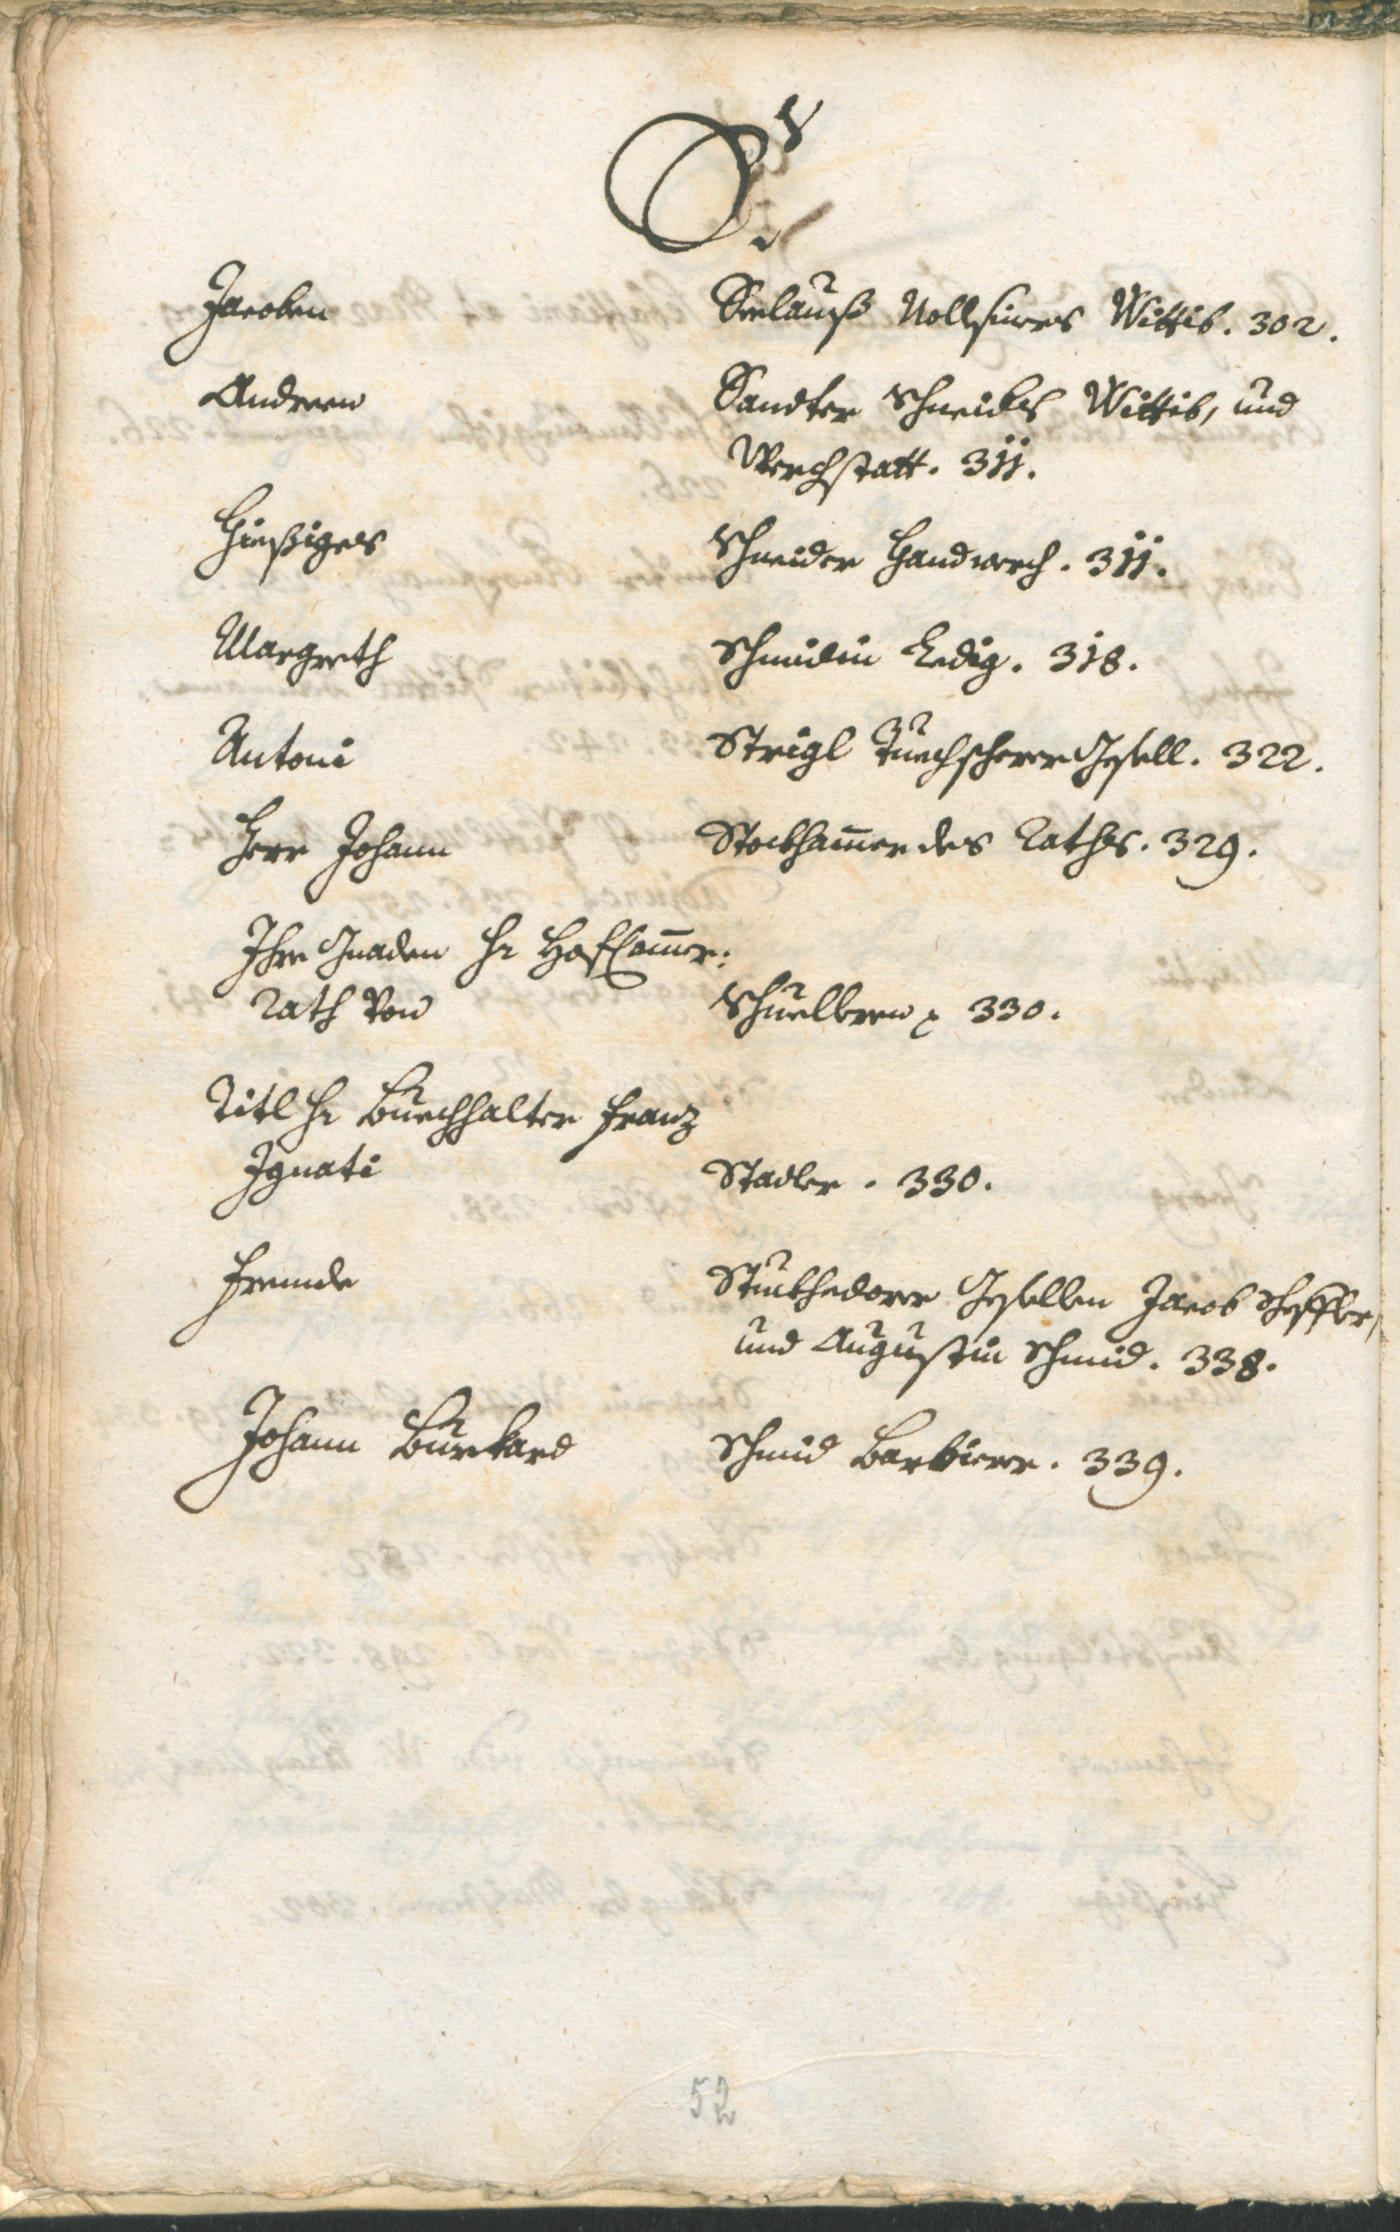 S.
Jacoben Seelauß Vollsiders Wittib. 302.
Andreen Sandter Schneiders Wittib, und
Werchstatt. 311.
Hießiges Schneider Handwerch. 311.
Margreth Schmidin Ledig. 318.
Antoni Strigl Tuechscherer Gesell. 322.
Herr Johann Stockhamer des Raths. 329.
Ihro Gnaden Hr Hofcamer:
Rath Von 330.
Titl Hr Buechhalter Franz
Ignati Stadler. 330.
Fremde Stuckhadorer Gesellen Jacob Scheffler,
und Augustin Schmid. 338.
Johann Burkard Schmid Barbierer. 339.
52